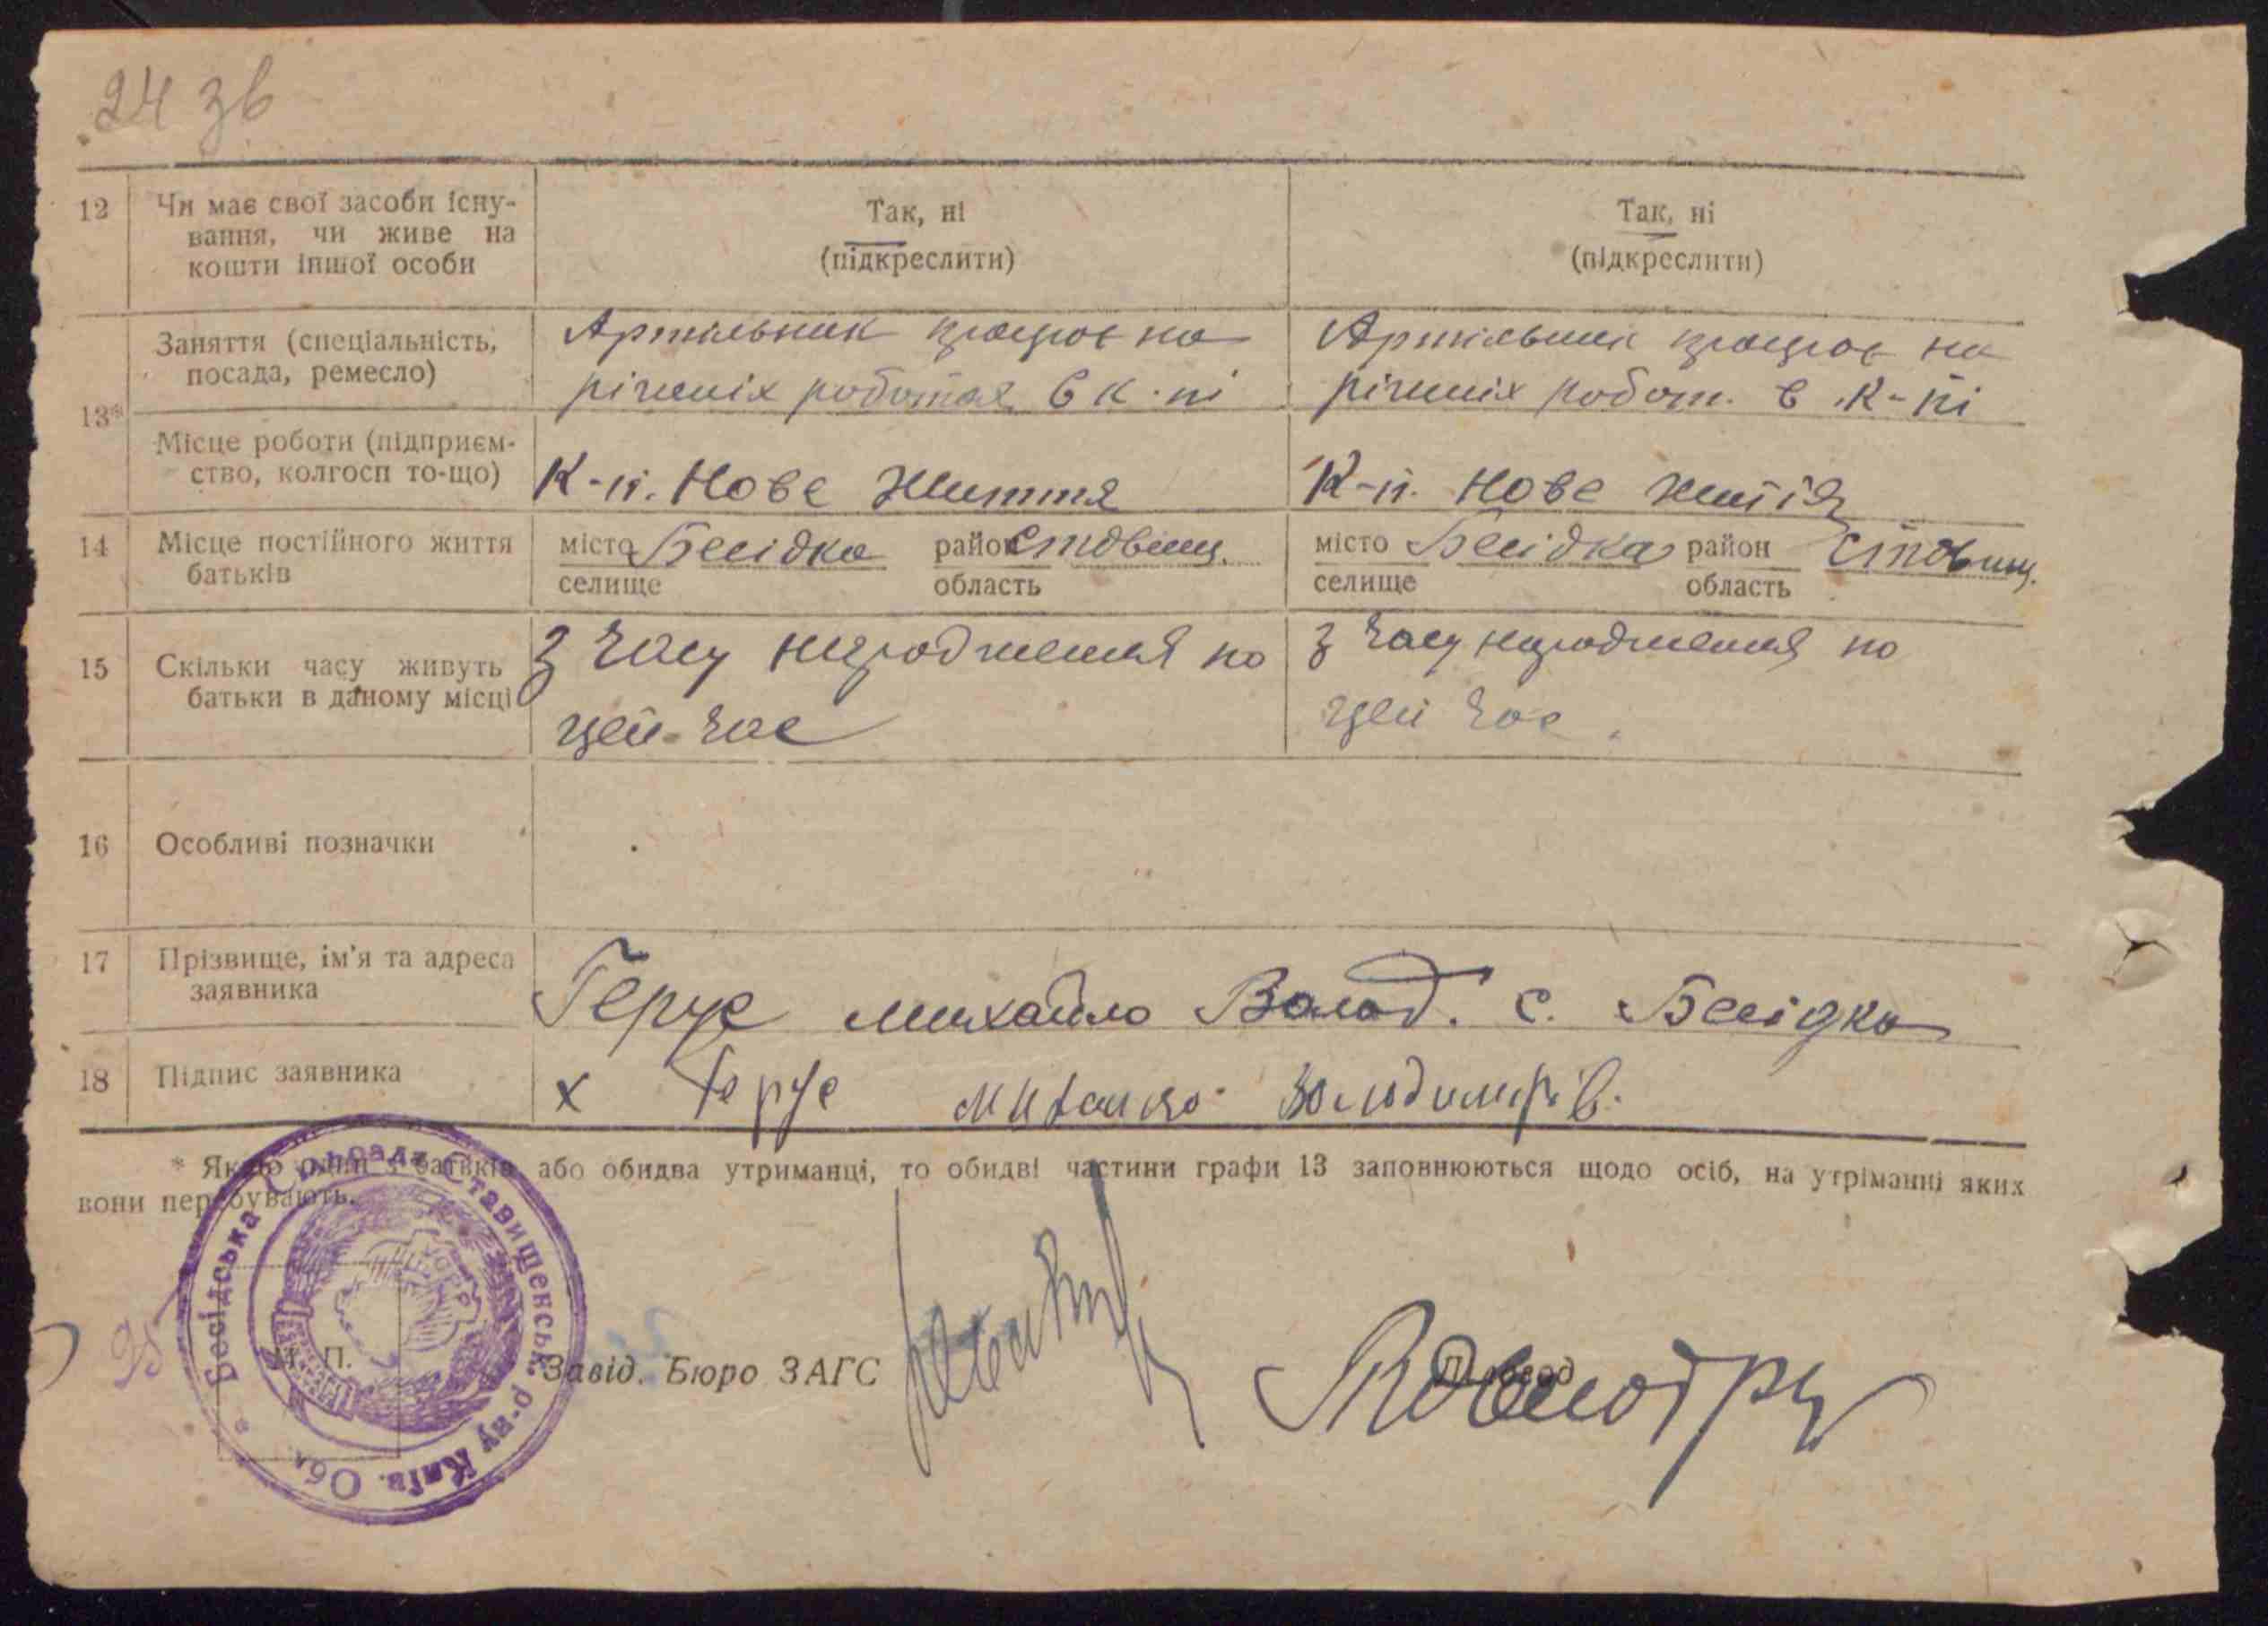 24 зв
12 Чи має свої засоби існу-
вання, чи живе на
кошти іншої особи
Так, ні
(підкреслити)
Так, ні
(підкреслити)
13*
Заняття (спеціальність,
посада, ремесло)
Артільник працює на
різних роботах в к-пі
Артільниця працює на
різних робот. в к-пі
Місце роботи (підприєм-
ство, колгосп то-що)
К-п. Нове Життя
К-п. Нове життя
14 Місце постійного життя
батьків
місто Бесідка район Стовищ.
селище область
місто Бесідка район Стовищ.
селище область
15 Скільки часу живуть
батьки в даному місці
З часу народження по
цей час
З часу народження по
цей час.
16 Особливі позначки
17 Прізвище, ім'я та адреса
заявника
Герус Михайло Волод. с. Бесідка
18 Підпис заявника
х Герус Михайло Володимирів.
* Якщо один з батьків або обидва утриманці, то обидві частини графи 13 заповнюються щодо осіб, на утріманні яких
вони перебувають.
Бесідська Сільрада Ставищенськ. р-ну Київ. Обл.
УСРР
95
М. П.
Завід. Бюро ЗАГС